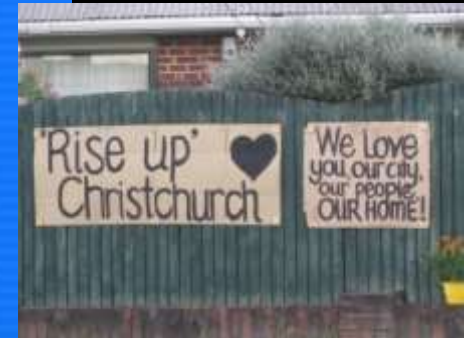 'Rise up'
Christchurch
We Love
you, our city,
our people,
OUR HOME!